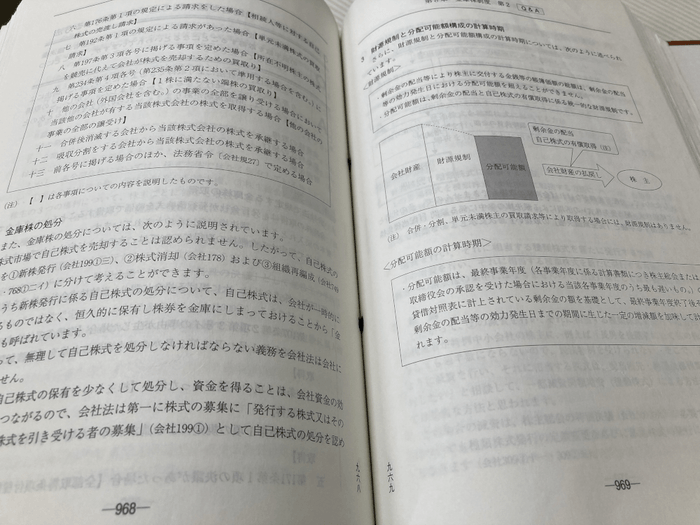 六 第176条第1項の規定による請求をした場合【相続人等に対する売
株式の売渡し請求】
七 第192条第1項の規定による請求があった場合【単元未満株式の買取
請求】
八 第197条第3項各号に掲げる事項を定めた場合【所在不明株主の株式
を競売に代えて会社が株式を売却するための買取り】
九 第234条第4項各号(第235条第2項において準用する場合を含む。)に
掲げる事項を定めた場合【1株に満たない端株の買取り】
十 他の会社(外国会社を含む。)の事業の全部を譲り受ける場合において
当該他の会社が有する当該株式会社の株式を取得する場合【他の会社の
事業の全部の譲受け】
十一 合併後消滅する会社から当該株式会社の株式を承継する場合
十二 吸収分割をする会社から当該株式会社の株式を承継する場合
十三 前各号に掲げる場合のほか、法務省令(会社規27)で定める場合
(注) 【 】は各事項についての内容を説明したものです。
金庫株の処分
また、金庫株の処分については、次のように説明されています。
株式市場で自己株式を売却することは認められません。したがって、自己株式の
を①新株発行(会社199①三)、②株式消却(会社178)および③組織再編成(会社749
・768①二イ)に分けて考えることができます。
うち新株発行に係る自己株式の処分について、自己株式は、会社が一時的に
るものではなく、恒久的に保有し株券を金庫にしまっておけることから「金
も呼ばれています。
って、無理して自己株式を処分しなければならない義務を会社法は会社に
せん。
自己株式の保有を少なくして処分し、資金を得ることは、会社資金の効
つながるので、会社法は第一に株式の募集に「発行する株式又はその
株式を引き受ける者の募集」(会社199①)として自己株式の処分を認め
九六八
—968—
Q&A
3 財源規制と分配可能額構成の計算時期
さらに、財源規制と分配可能額構成の計算時期については、次のように述べられ
ています。
<財源規制>
・剰余金の配当等により株主に交付する金銭等の帳簿価額の総額は、剰余金の配当
等の効力発生日における分配可能額を超えることができません。
・分配可能額は、剰余金の配当と自己株式の有償取得に係る統一的な財源規制です。
会社財産
財源規制
分配可能額
剰余金の配当
自己株式の有償取得(注)
会社財産の払戻し
株 主
(注) 合併・分割、単元未満株主の買取請求等により取得する場合には、財源規制はありません。
<分配可能額の計算時期>
・分配可能額は、最終事業年度(各事業年度に係る計算書類につき株主総会または
取締役会の承認を受けた場合における当該各事業年度のうち最も遅いもの)の
貸借対照表に計上されている剰余金の額を基礎として、最終事業年度終了後、
剰余金の配当等の効力発生日までの期間に生じた一定の増減額を加味して計
れます。
九六九
—969—